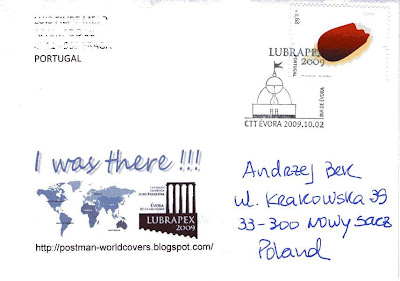 PORTUGAL
LUBRAPEX
2009
DIA DE ÉVORA
CTT ÉVORA 2009.10.02
I was there !!!
ÉVORA
LUBRAPEX
2009
http://postman-worldcovers.blogspot.com/
Andrzej Bek
ul. Krakowska 39
33-300 Nowy Sącz
Poland